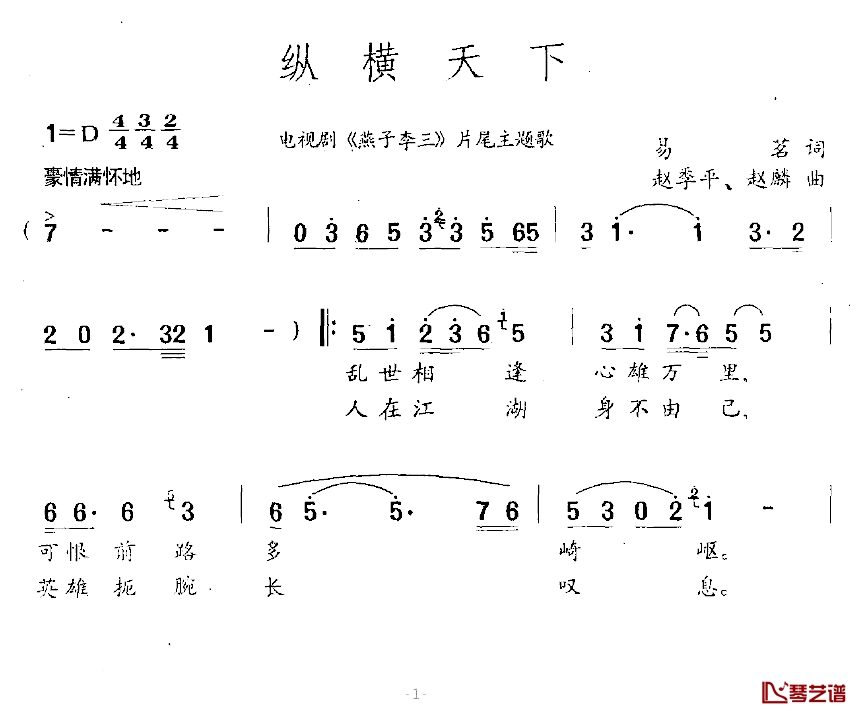 纵横天下
1=D 4/4 3/4 2/4
电视剧《燕子李三》片尾主题歌
易茗词
豪情满怀地
赵季平、赵麟曲
( 7 - - - | 0 3 6 5 3 2 3 5 65 | 3 1· 1 3· 2 |
2 0 2· 32 1 - ) ‖: 5 1 2 3 6 1 5 | 3 1 7·6 5 5 |
乱世相逢 心雄万里,
人在江湖 身不由己,
6 6· 6 5 3 | 6 5· 5· 7 6 | 5 3 0 2 2 1 - |
可恨前路多崎岖。
英雄扼腕长叹息。
-1-
琴艺谱